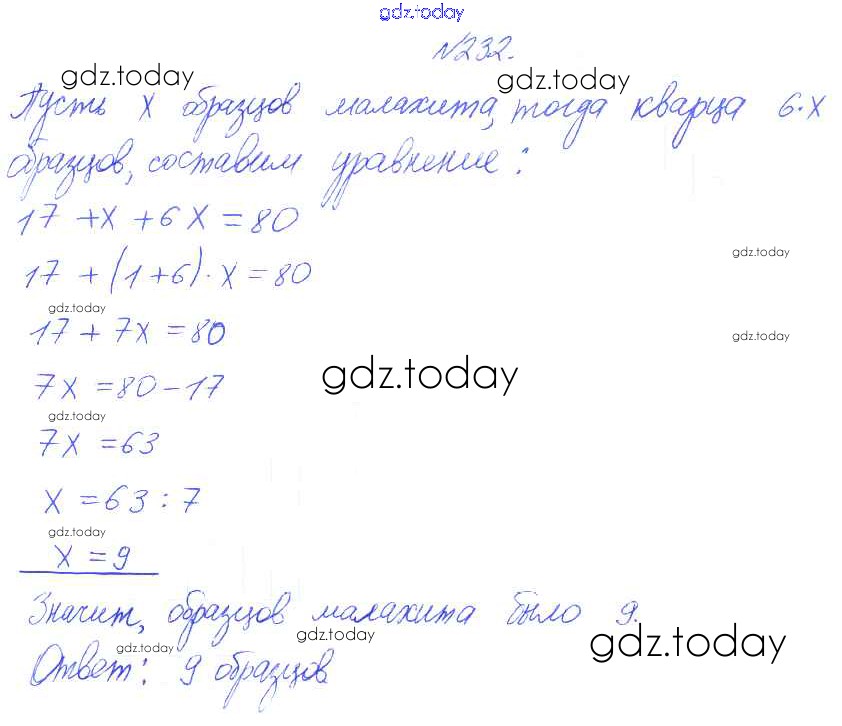 gdz.today
№232.
gdz.today
Пусть x образцов малахита, тогда кварца 6·x
образцов, составим уравнение:
17 + x + 6x = 80
gdz.today
17 + (1+6)·x = 80
gdz.today
17 + 7x = 80
gdz.today
gdz.today
7x = 80 - 17
gdz.today
7x = 63
x = 63 : 7
gdz.today
x = 9
Значит, образцов малахита было 9.
gdz.today
gdz.today
gdz.today
Ответ: 9 образцов